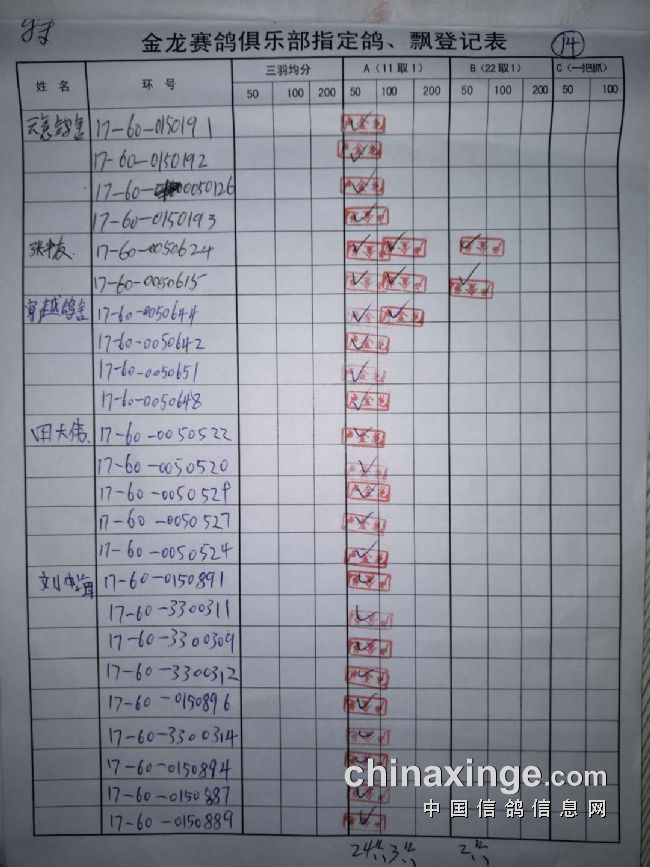 金龙赛鸽俱乐部指定鸽、飘登记表
14
姓名 环号 三羽均分 A（11取1） B（22取1） C（一把抓）
50 100 200 50 100 200 50 100 200 50 100
17-60-0150191
17-60-0150192
17-60-0050126
17-60-0150193
17-60-0050624
17-60-0050615
穿越鸽舍 17-60-0050644
17-60-0050642
17-60-0050651
17-60-0050648
田大伟 17-60-0050522
17-60-0050520
17-60-0050529
17-60-0050527
17-60-0050524
17-60-0150891
17-60-3300311
17-60-3300309
17-60-3300312
17-60-0150896
17-60-3300314
17-60-0150894
17-60-0150887
17-60-0150889
chinaxinge.com
中国信鸽信息网
24 3 2